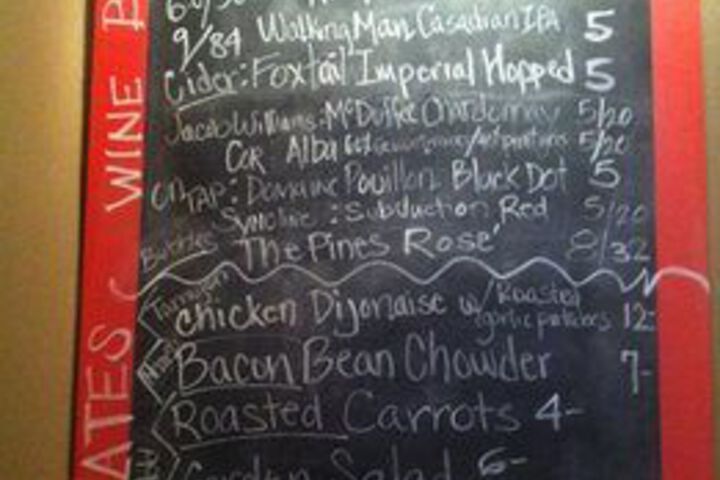 9/84 Walking Man Casadian IPA 5
Cider: Foxtail Imperial Hopped 5
Jacob Williams: McDuffee Chardonnay 5/20
Cor Alba 5/20
on TAP: Domaine Pouillon Black Dot 5
Syncline: Subduction Red 5/20
Bubbles The Pines Rosé 8/32
Tarragon
Chicken Dijonaise w/ Roasted
garlic potatoes 12-
Bacon Bean Chowder 7-
Roasted Carrots 4-
Garden Salad 6-
WINE
ATES